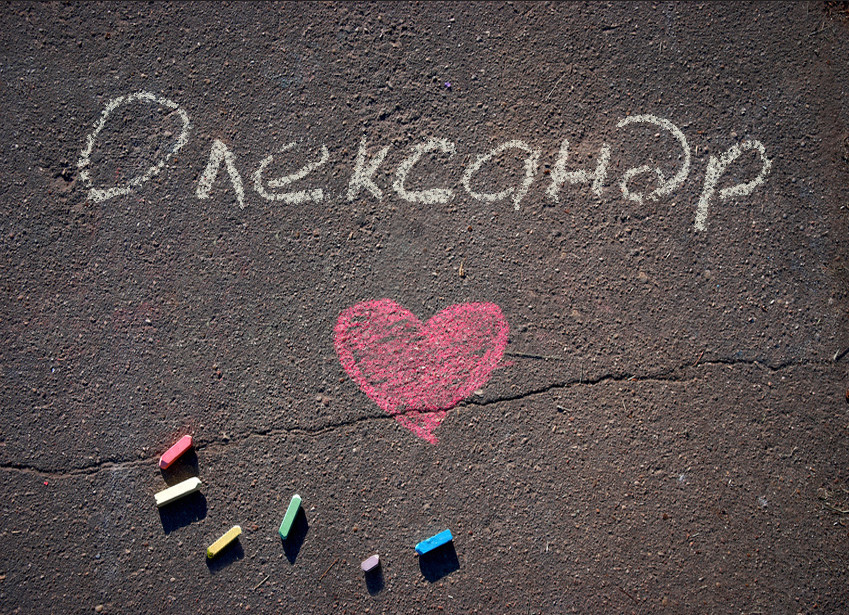 Олександр